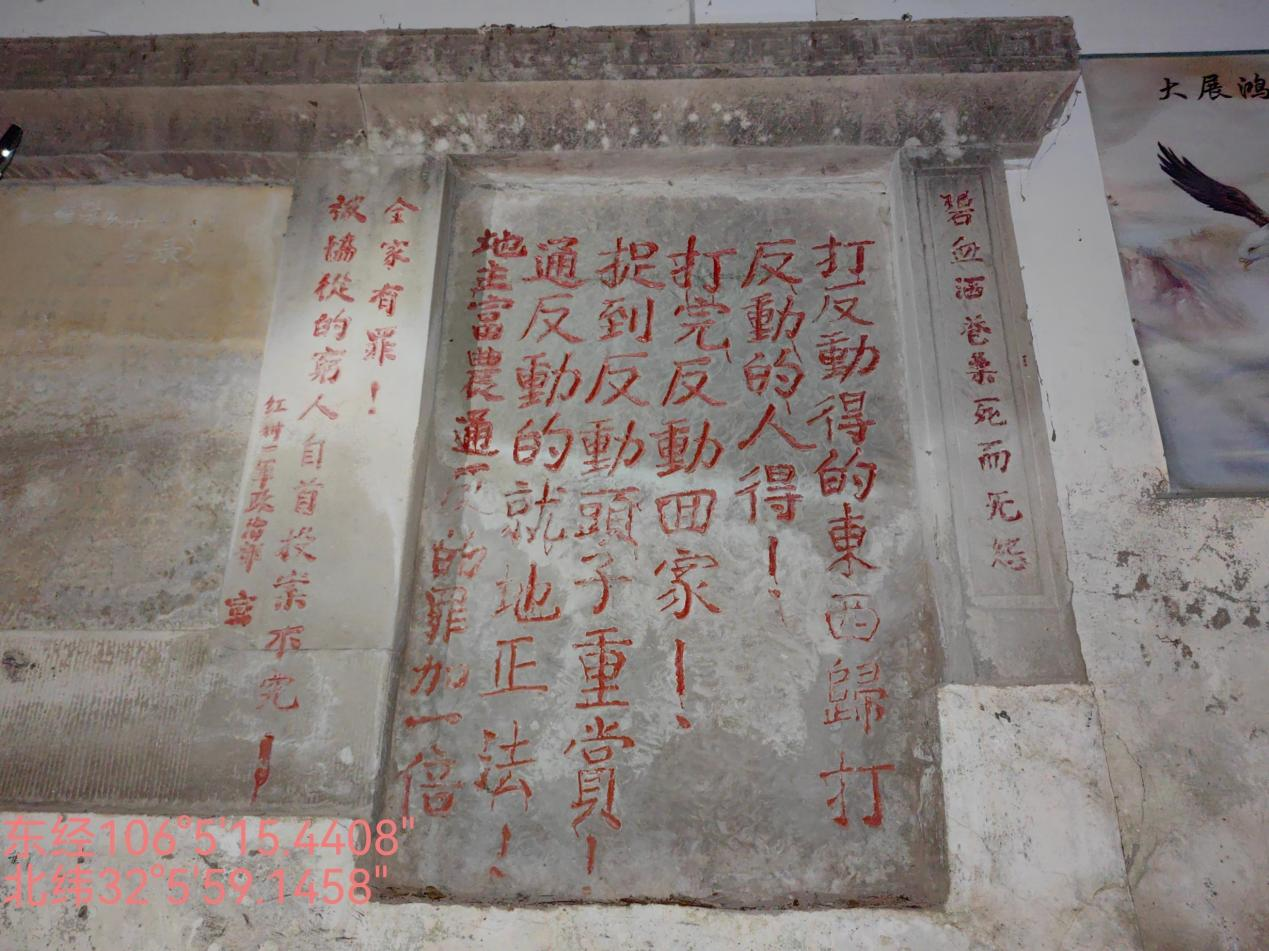 大展鴻
碧血洒苍桑死而无怨
打反動得的東西歸打
反動的人得！
打完反動回家！
捉到反動頭子重賞！
通反動的就地正法！
地主富農通反的罪加一倍
全家有罪！
被協從的窮人自首投案不究！
红卅一軍政治部 宣
东经106°5'15.4408"
北纬32°5'59.1458"